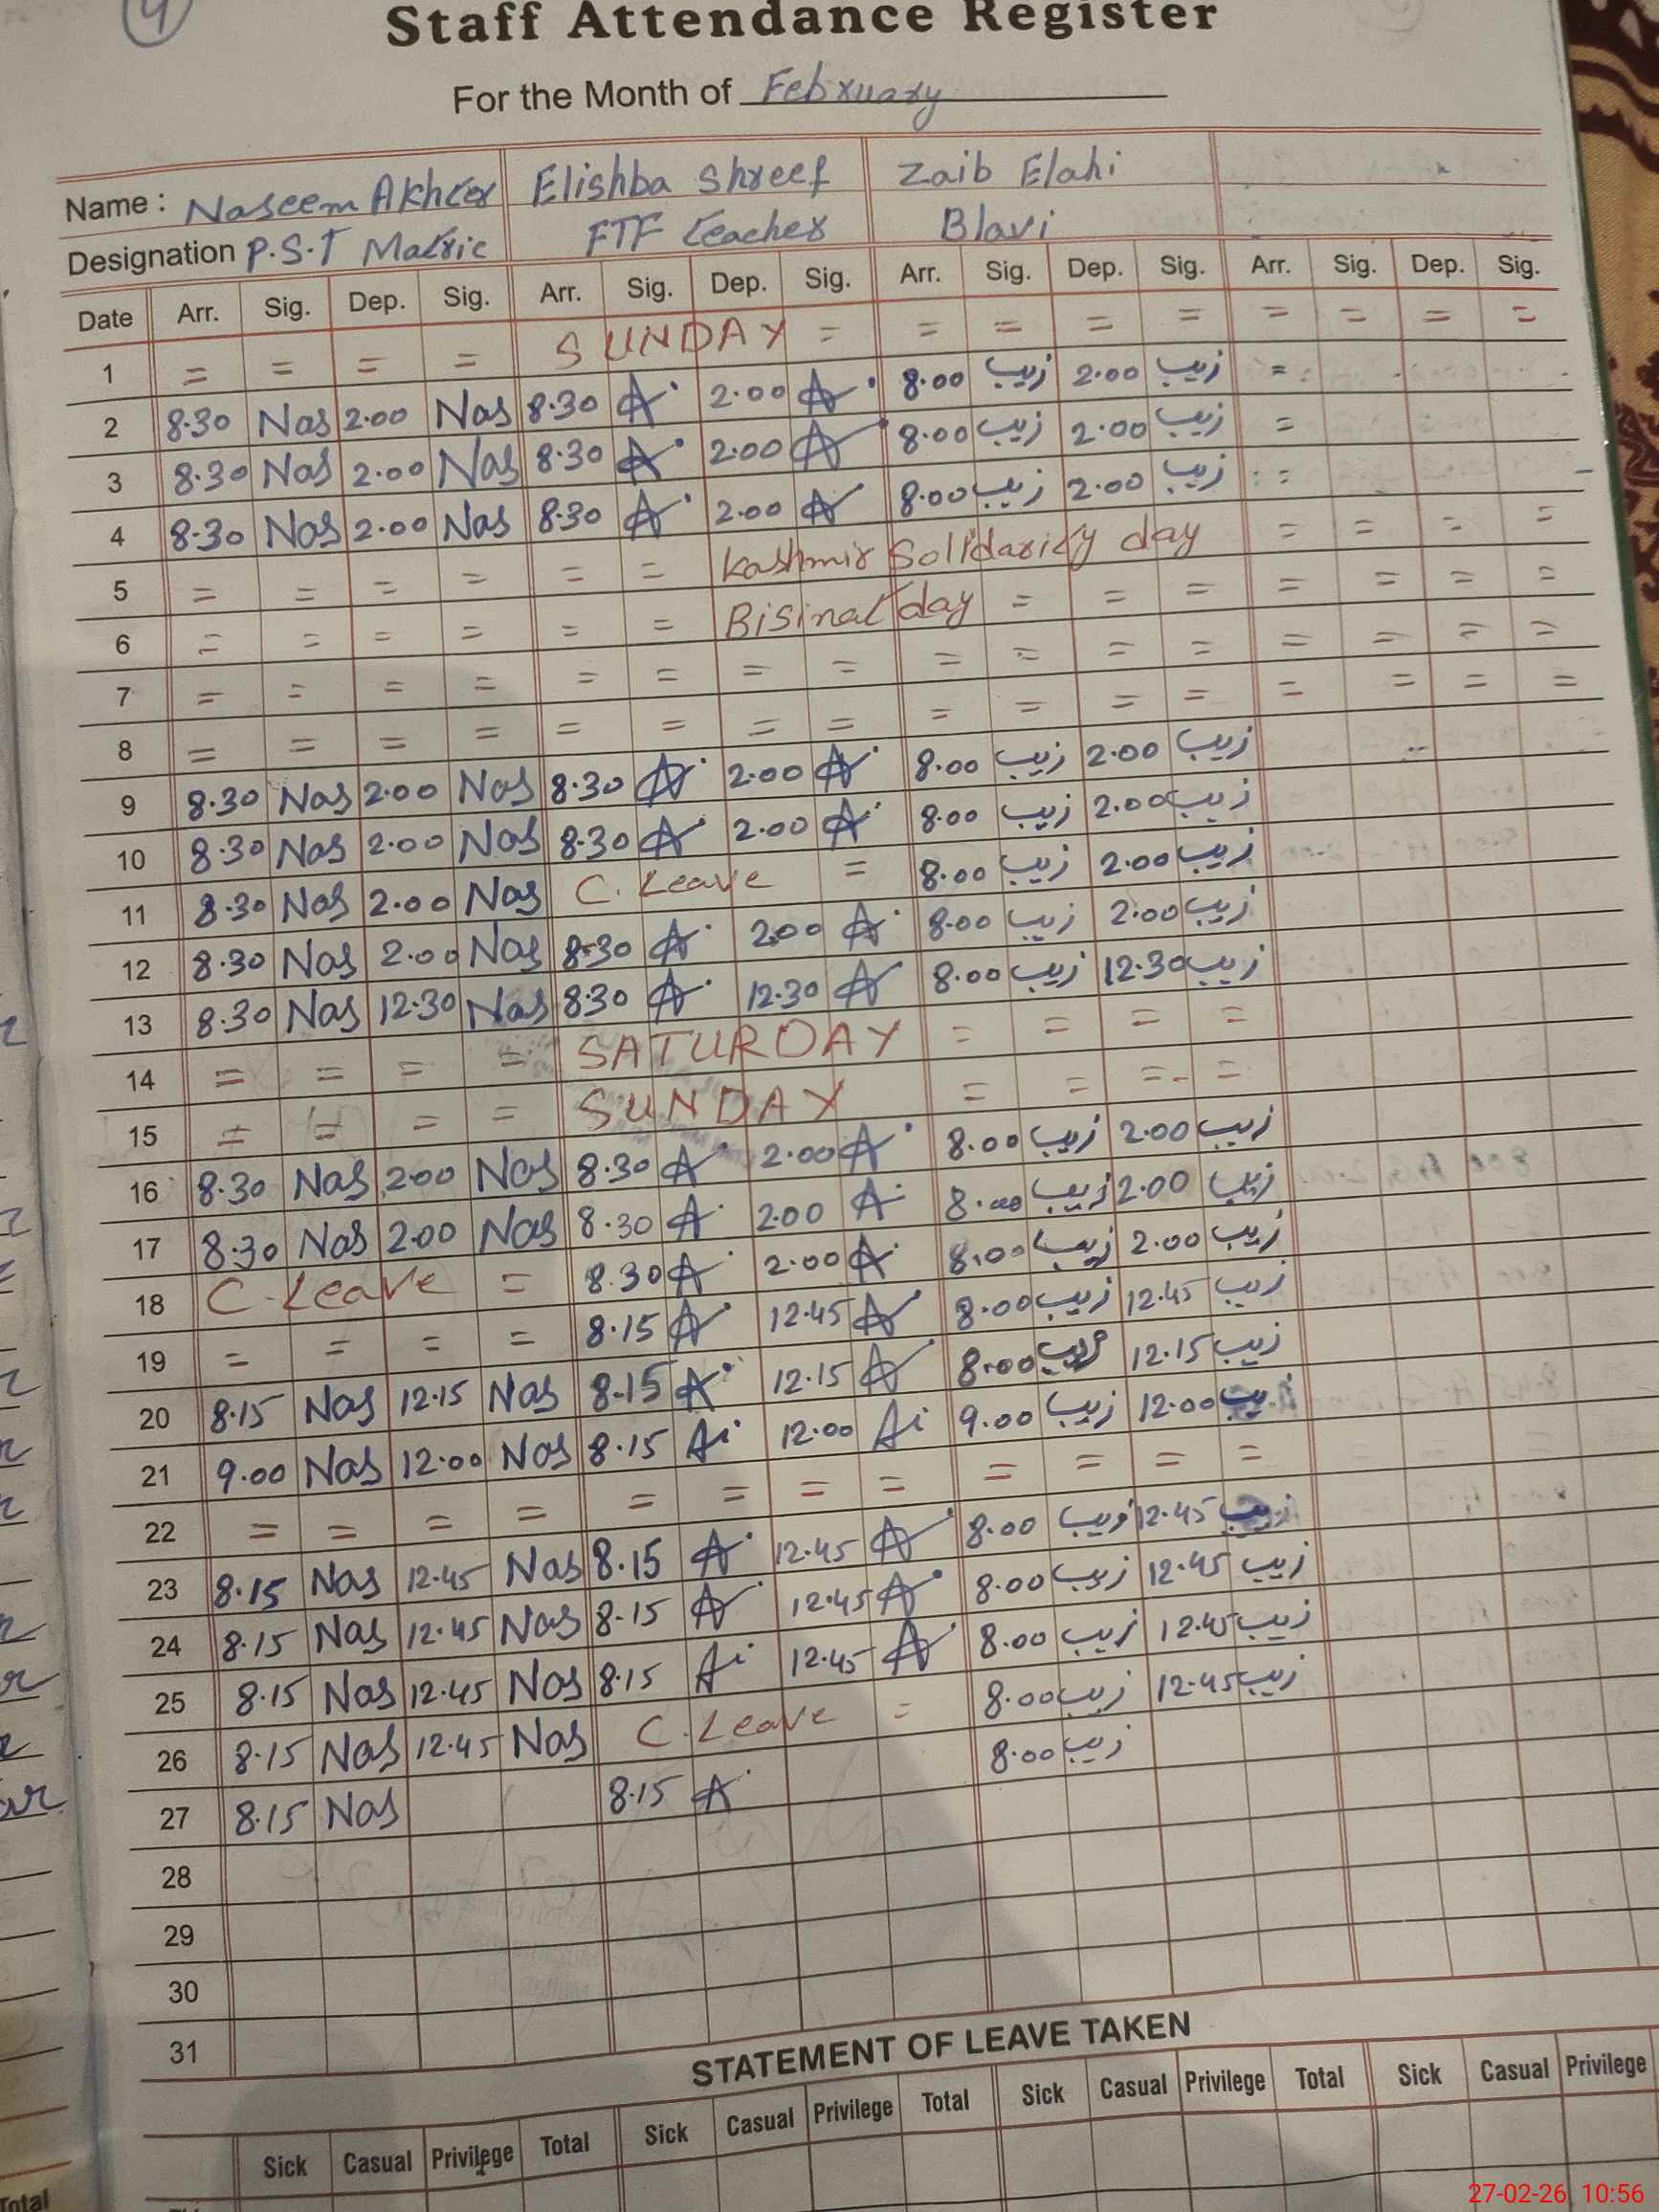 4
Staff Attendance Register
For the Month of February
Name : Naseem Akhter Elishba Shreef Zaib Elahi
Designation P.S.T Matric FTF teacher Blavi
Date Arr. Sig. Dep. Sig. Arr. Sig. Dep. Sig. Arr. Sig. Dep. Sig. Arr. Sig. Dep. Sig.
1 = = = = SUNDAY = = = = = = = = =
2 8.30 Nas 2.00 Nas 8.30 A 2.00 A 8.00 زیب 2.00 زیب =
3 8.30 Nas 2.00 Nas 8.30 A 2.00 A 8.00 زیب 2.00 زیب =
4 8.30 Nas 2.00 Nas 8.30 A 2.00 A 8.00 زیب 2.00 زیب =
5 = = = = = = Kashmir Solidarity day = = = =
6 = = = = = = Bisinat day = = = = = = =
7 = = = = = = = = = = = = = = = =
8 = = = = = = = = = = = = = = = =
9 8.30 Nas 2.00 Nas 8.30 A 2.00 A 8.00 زیب 2.00 زیب
10 8.30 Nas 2.00 Nas 8.30 A 2.00 A 8.00 زیب 2.00 زیب
11 8.30 Nas 2.00 Nas C. Leave = 8.00 زیب 2.00 زیب
12 8.30 Nas 2.00 Nas 8.30 A 2.00 A 8.00 زیب 2.00 زیب
13 8.30 Nas 12.30 Nas 8.30 A 12.30 A 8.00 زیب 12.30 زیب
14 = = = = SATURDAY = = = =
15 = = = = SUNDAY = = = =
16 8.30 Nas 2.00 Nas 8.30 A 2.00 A 8.00 زیب 2.00 زیب
17 8.30 Nas 2.00 Nas 8.30 A 2.00 A 8.00 زیب 2.00 زیب
18 C. Leave = 8.30 A 2.00 A 8.00 زیب 2.00 زیب
19 = = = = 8.15 A 12.45 A 8.00 زیب 12.45 زیب
20 8.15 Nas 12.15 Nas 8.15 A 12.15 A 8.00 زیب 12.15 زیب
21 9.00 Nas 12.00 Nas 8.15 Ai 12.00 Ai 9.00 زیب 12.00 زیب
22 = = = = = = = = = = = =
23 8.15 Nas 12.45 Nas 8.15 A 12.45 A 8.00 زیب 12.45 زیب
24 8.15 Nas 12.45 Nas 8.15 A 12.45 A 8.00 زیب 12.45 زیب
25 8.15 Nas 12.45 Nas 8.15 Ai 12.45 A 8.00 زیب 12.45 زیب
26 8.15 Nas 12.45 Nas C. Leave = 8.00 زیب 12.45 زیب
27 8.15 Nas 8.15 A 8.00 زیب
28
29
30
31
STATEMENT OF LEAVE TAKEN
Sick Casual Privilege Total Sick Casual Privilege Total Sick Casual Privilege Total Sick Casual Privilege
Total
27-02-26 10:56